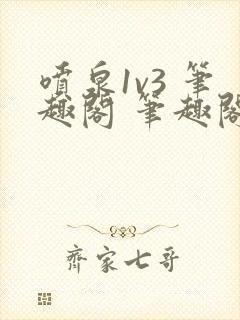 噴泉1v3 筆
趣閣 筆趣閣
齊家七哥